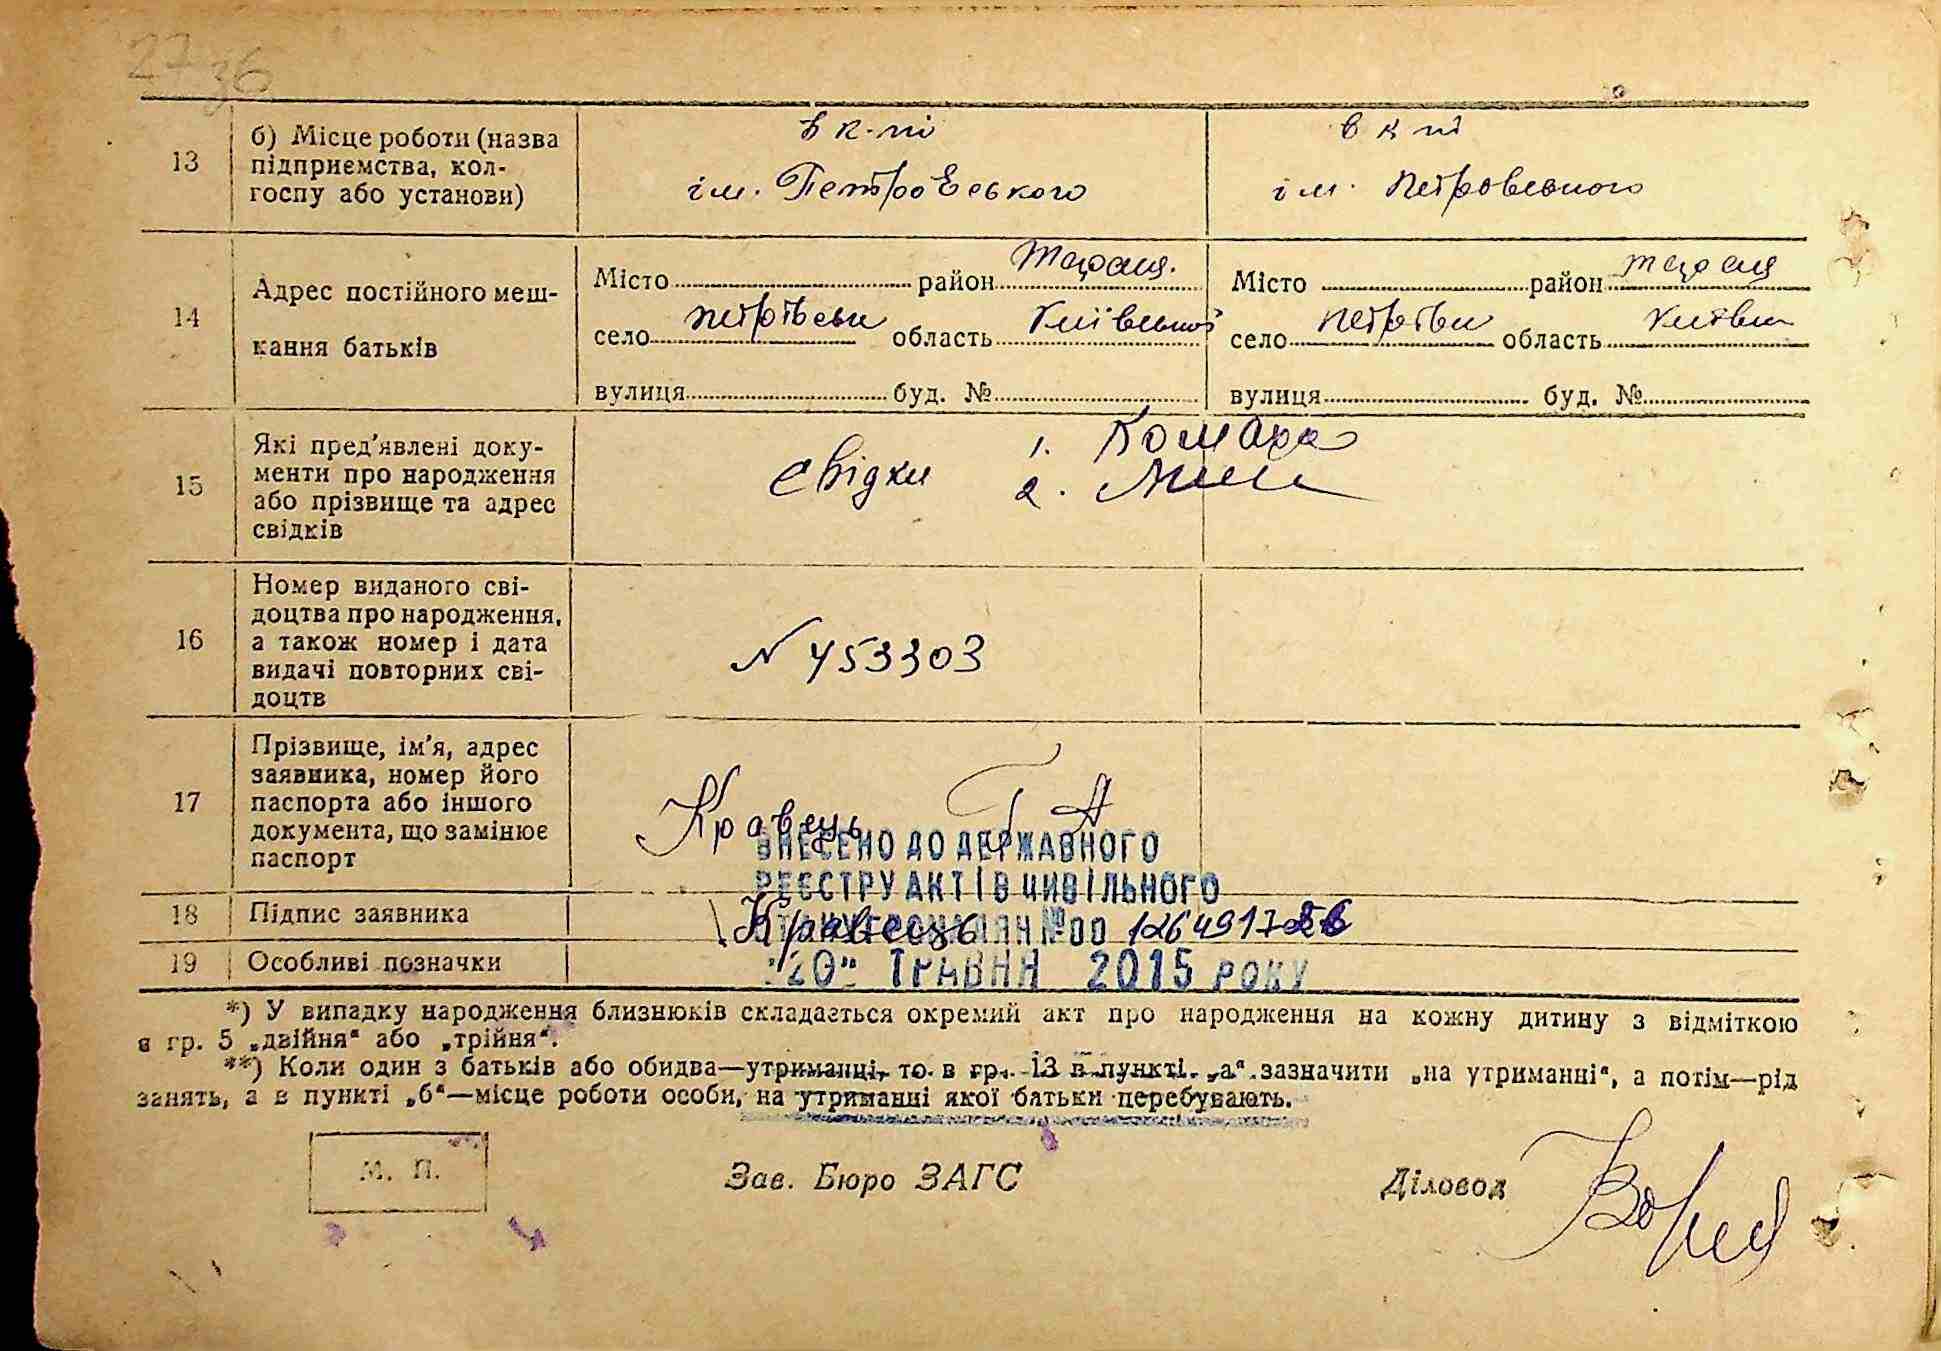 27 36
13
б) Місце роботи (назва
підприємства, кол-
госпу або установи)
в к-пі
ім. Петровського
в к пі
ім. Петровського
14
Адрес постійного меш-
кання батьків
Місто район
село область Київської
вулиця буд. №
Місто район
село область
вулиця буд. №
15
Які пред'явлені доку-
менти про народження
або прізвище та адрес
свідків
свідки 1. Комара
2.
16
Номер виданого сві-
доцтва про народження,
а також номер і дата
видачі повторних сві-
доцтв
N 453303
17
Прізвище, ім'я, адрес
заявника, номер його
паспорта або іншого
документа, що замінює
паспорт
Кравець Г А
ВНЕСЕНО ДО ДЕРЖАВНОГО
РЕЄСТРУ АКТІВ ЦИВІЛЬНОГО
18
Підпис заявника
Кравець
СТАНУ ГРОМАДЯН №00 126491726
19
Особливі позначки
"20" ТРАВНЯ 2015 РОКУ
*) У випадку народження близнюків складається окремий акт про народження на кожну дитину з відміткою
в гр. 5 „двійня“ або „трійня“.
**) Коли один з батьків або обидва—утриманці, то в гр. 13 в пункті „а“ зазначити „на утриманні“, а потім—рід
занять, а в пункті „б“—місце роботи особи, на утриманні якої батьки перебувають.
М. П.
Зав. Бюро ЗАГС
Діловод